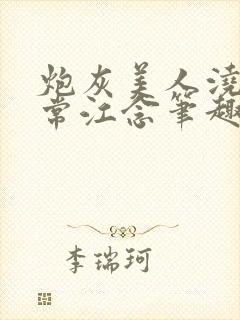 炮灰美人浇
常江念笔趣
李瑞珂